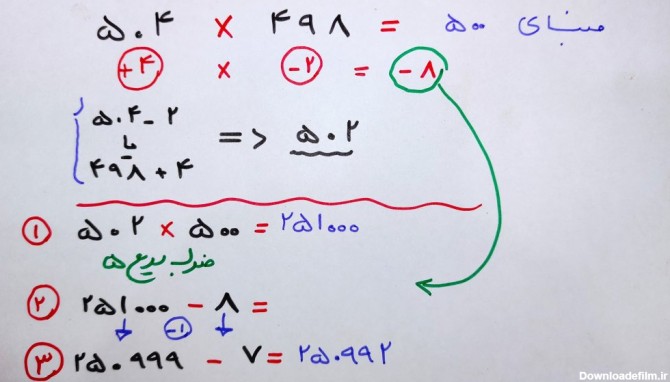 ۵۰۴ × ۴۹۸ = ۵۰۰ مبنای
+۴ × -۲ = -۸
۵۰۴ - ۲
یا
۴۹۸ + ۴
=> ۵۰۲
۱ ۵۰۲ × ۵۰۰ = ۲۵۱۰۰۰
ضرب سریع ۵
۲ ۲۵۱۰۰۰ - ۸ =
-۱
۳ ۲۵۰۹۹۹ - ۷ = ۲۵۰۹۹۲
Downloadefilm.ir